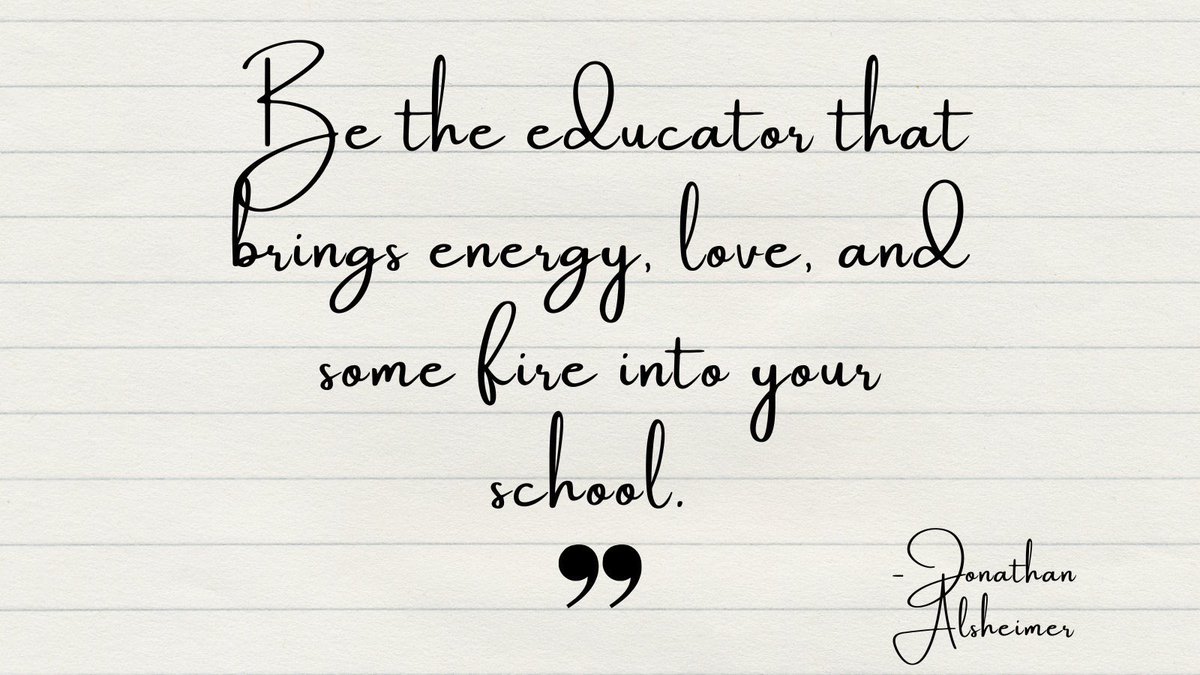 Be the educator that
brings energy, love, and
some fire into your
school.
”
-Jonathan
Alsheimer